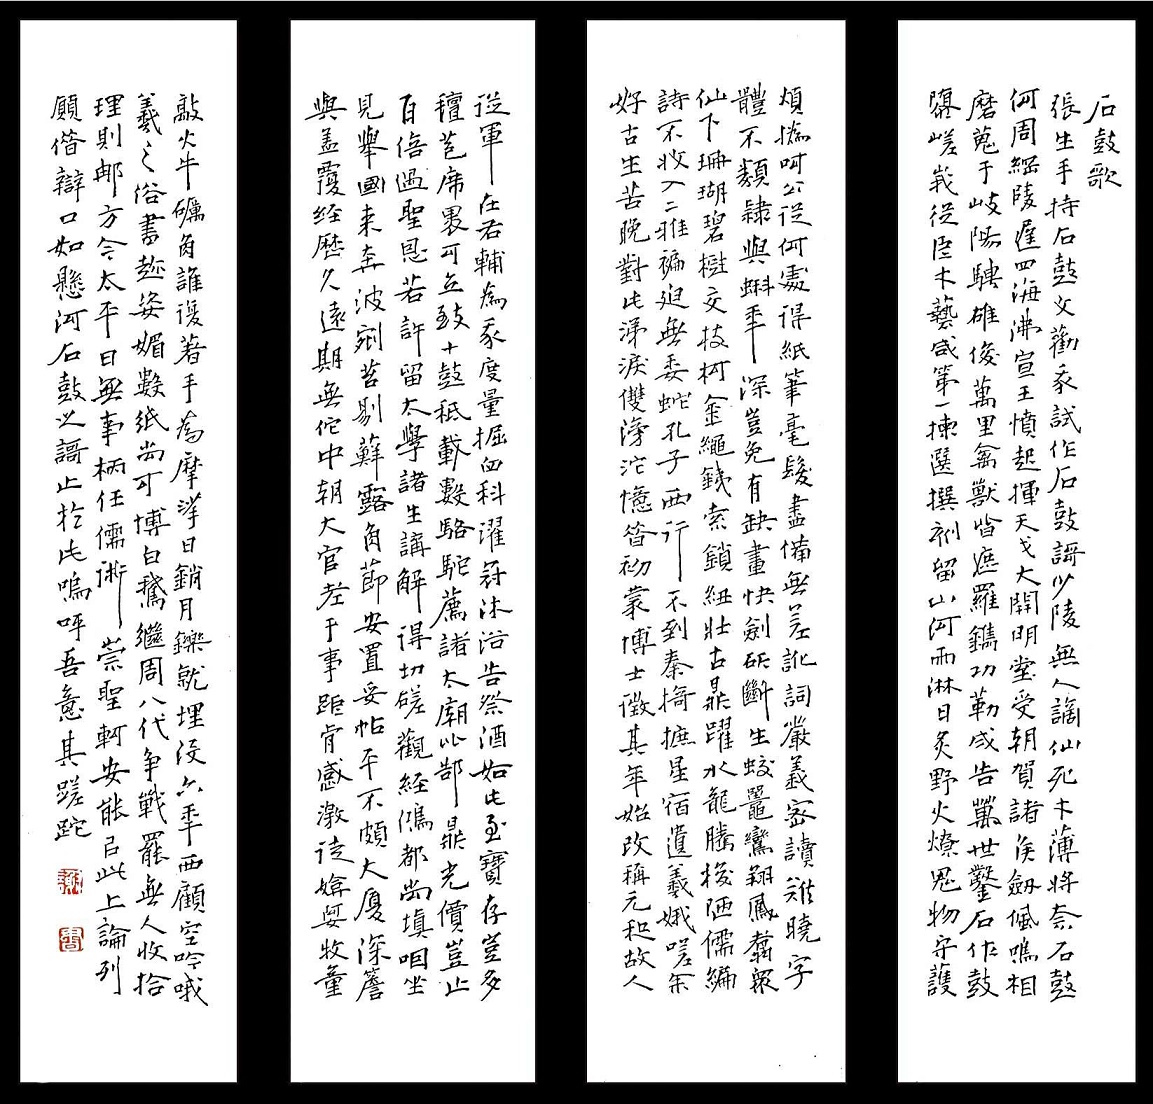 石鼓歌
張生手持石鼓文勸我試作石鼓謌少陵無人謫仙死才薄將奈石鼓
何周綱陵遲四海沸宣王憤起揮天戈大開明堂受朝賀諸侯劔佩鳴相
磨蒐于岐陽騁雄俊萬里禽獸皆遮羅鐫功勒成告萬世鑿石作鼓
隳嵯峩從臣才藝咸第一揀選撰刻留山阿雨淋日炙野火燎鬼物守護
煩撝呵公從何處得紙筆毫髮盡備無差訛詞嚴義密讀難曉字
體不類隸與蝌年深豈免有缺畫快劍斫斷生蛟鼉鸞翔鳳翥眾
仙下珊瑚碧樹交枝柯金繩鐵索鎖紐壯古鼎躍水龍騰梭陋儒編
詩不收入二雅褊迫無委蛇孔子西行不到秦掎摭星宿遺羲娥嗟余
好古生苦晚對此涕淚雙滂沱憶昔初蒙博士徵其年始改稱元和故人
從軍在右輔為我度量掘臼科濯冠沐浴告祭酒如此至寶存豈多
氊苞席裹可立致十鼓秪載數駱駝薦諸太廟比郜鼎光價豈止
百倍過聖恩若許留太學諸生講解得切磋觀經鴻都尚填咽坐
見舉國來奔波剜苔剔蘚露角節安置妥帖平不頗大廈深簷
與蓋覆經歷久遠期無佗中朝大官老于事詎肯感激徒媕婀牧童
敲火牛礪角誰復著手為摩挲日銷月鑠就埋沒六年西顧空吟哦
羲之俗書趂姿媚數紙尚可博白鵝繼周八代爭戰罷無人收拾
理則那方今太平日無事柄任儒術崇聖軻安能以此上論列
願借辯口如懸河石鼓之謌止於此嗚呼吾意其蹉跎
謝
書